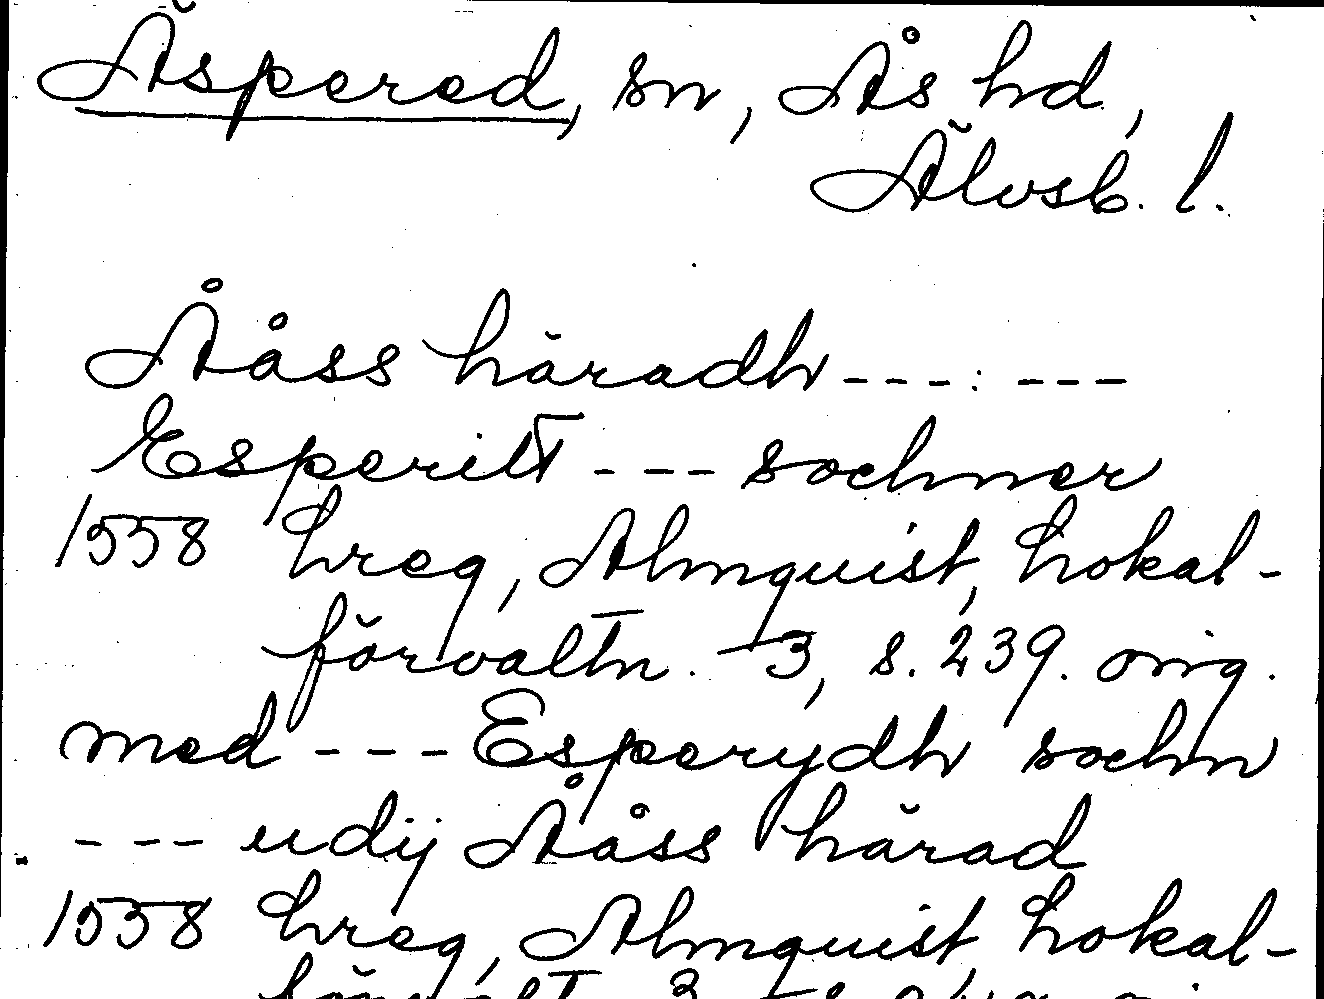 Äspered, sn, Ås hd,
Älvsb. l.
Åås​s häradh ---:---
Esperitt --- sochner
1558 Lreg, Almquist, Lokal-
förvaltn. 3, s. 239. orig.
med --- Esperydh sochn
--- udij Ååss härad
1558 Lreg, Almquist, Lokal-